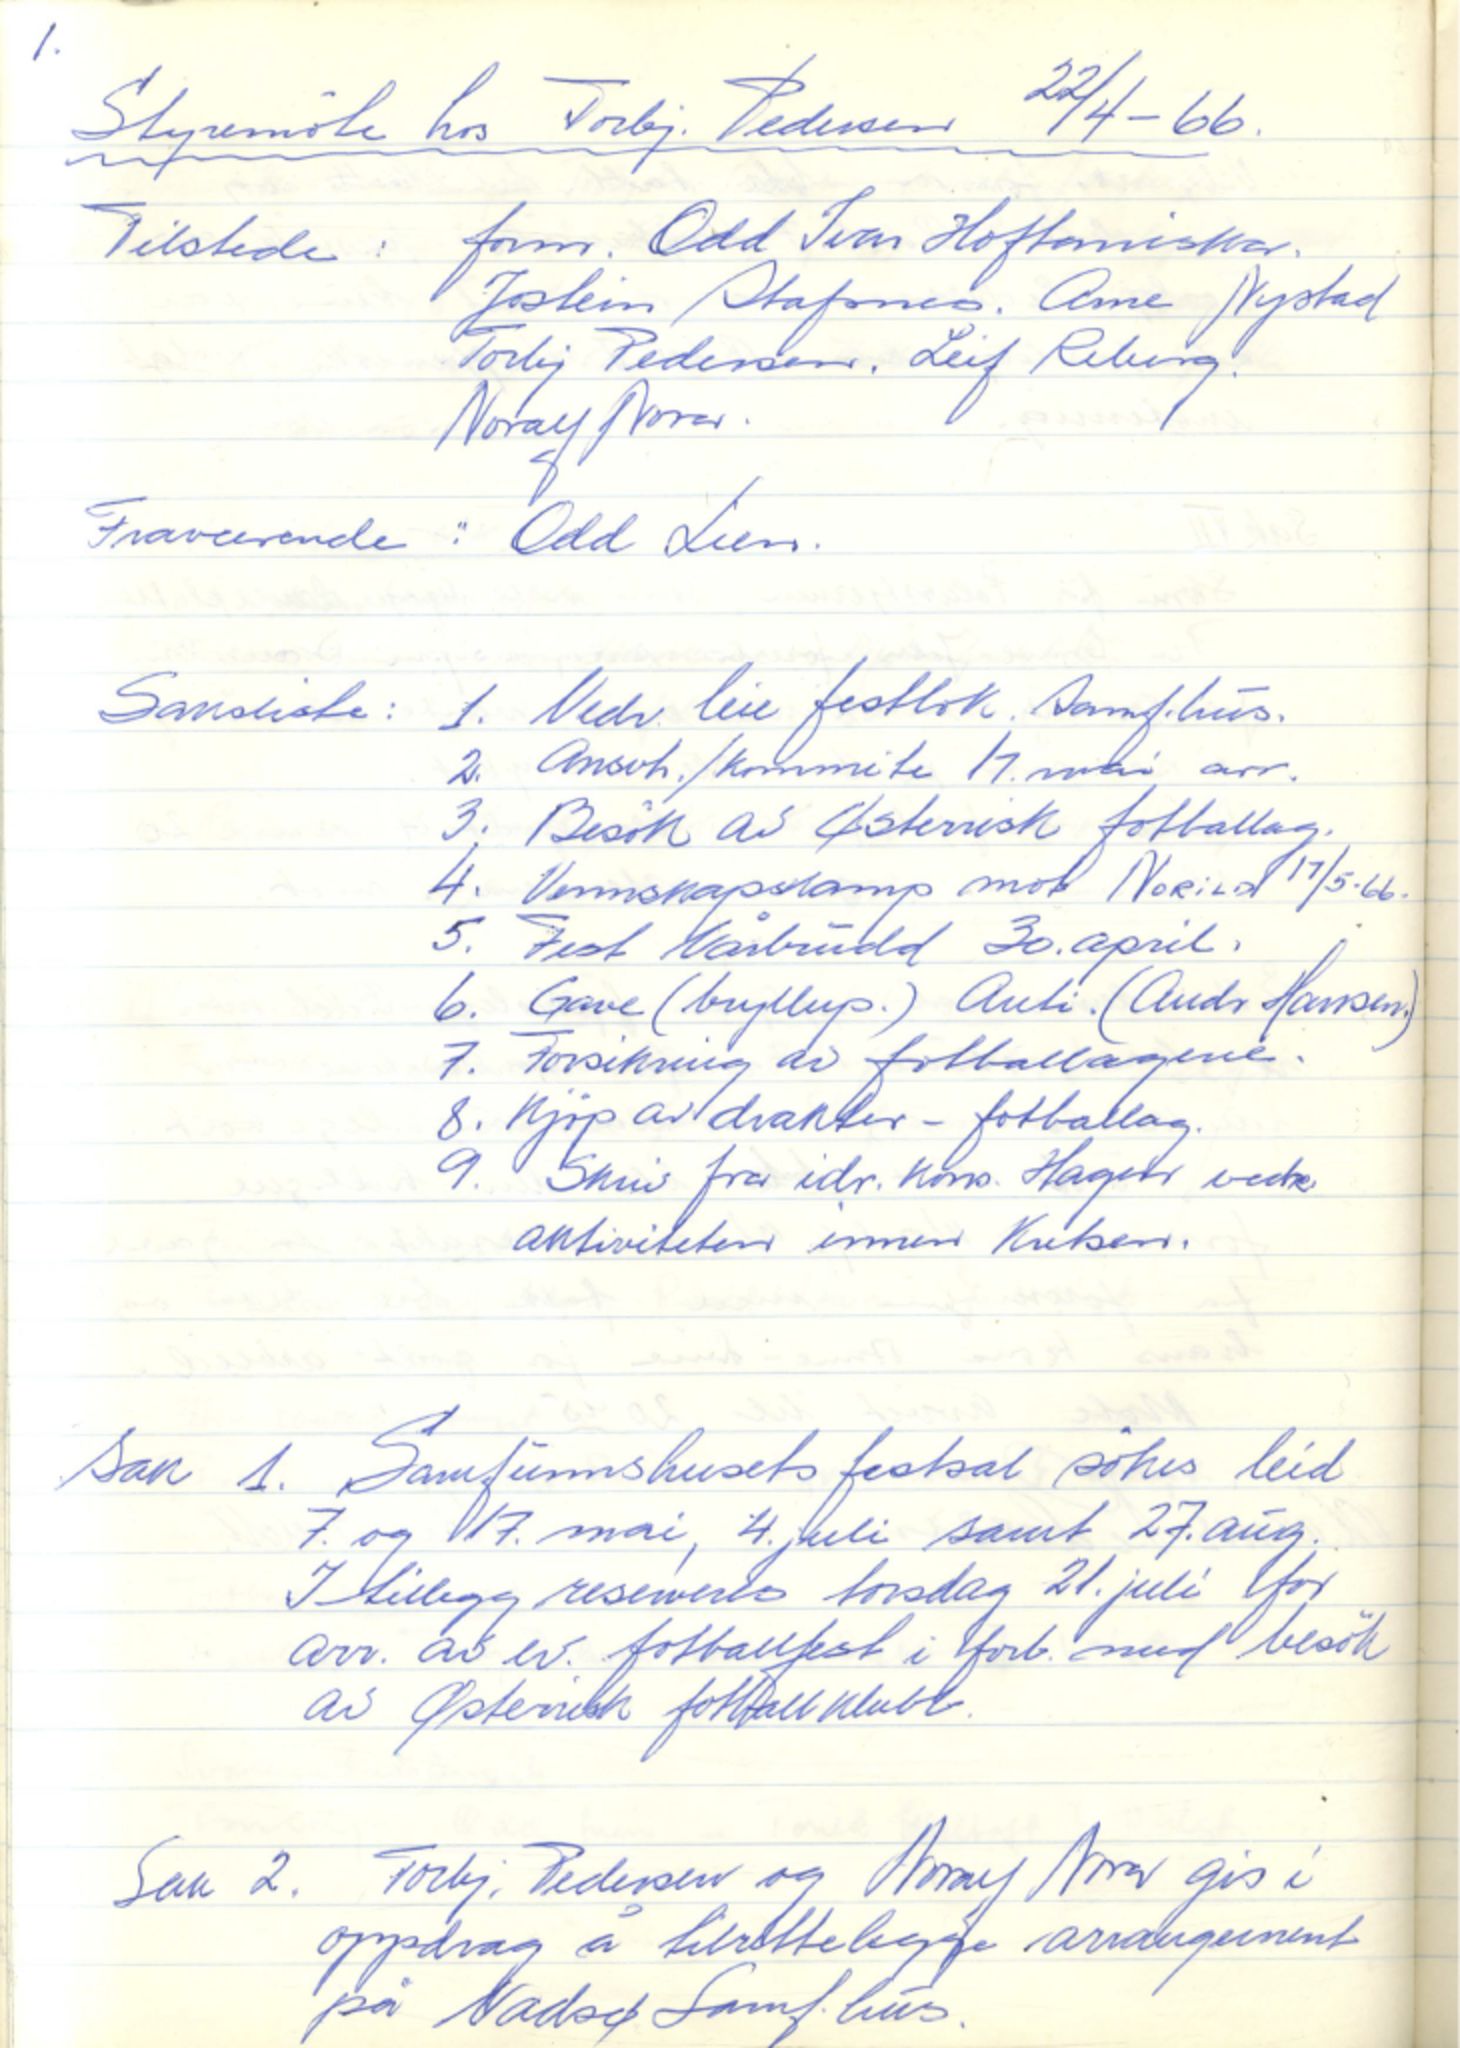 1.
Styremöte hos Torbj. Pedersen 22/4-66.
Tilstede: form. Odd Ivar Hoftaniska.
Jostein Stafsnes. Arne Nystad
Torbj Pedersen. Leif Reberg.
Noralf Nora.
Fraværende: Odd Lien.
Saksliste: 1. Vedr. leie festlok. Samf.hus.
2. Ansvh./kommite 17. mai arr.
3. Besök av Østerrisk fotballag.
4. Vennskapskamp mot NORILD 17/5-66.
5. Fest Vårbrudd 30. april.
6. Gave (bryllup.) Anti. (Andr Hansen.)
7. Forsikring av fotballagene.
8. Kjöp av drakter - fotballag.
9. Skriv fra idr. kons. Hagen vedr
aktiviteten innen Kretsen.
Sak 1. Samfunnshusets festsal sökes leid
7. og 17. mai, 4. juli samt 27. aug.
I tillegg reserveres torsdag 21. juli for
arr. av ev. fotballfest i forb. med besök
av Østerrisk fotballklubb.
Sak 2. Torbj. Pedersen og Noralf Nora gis i
oppdrag å tilrettelegge arrangement
på Vadsø Samf.hus.